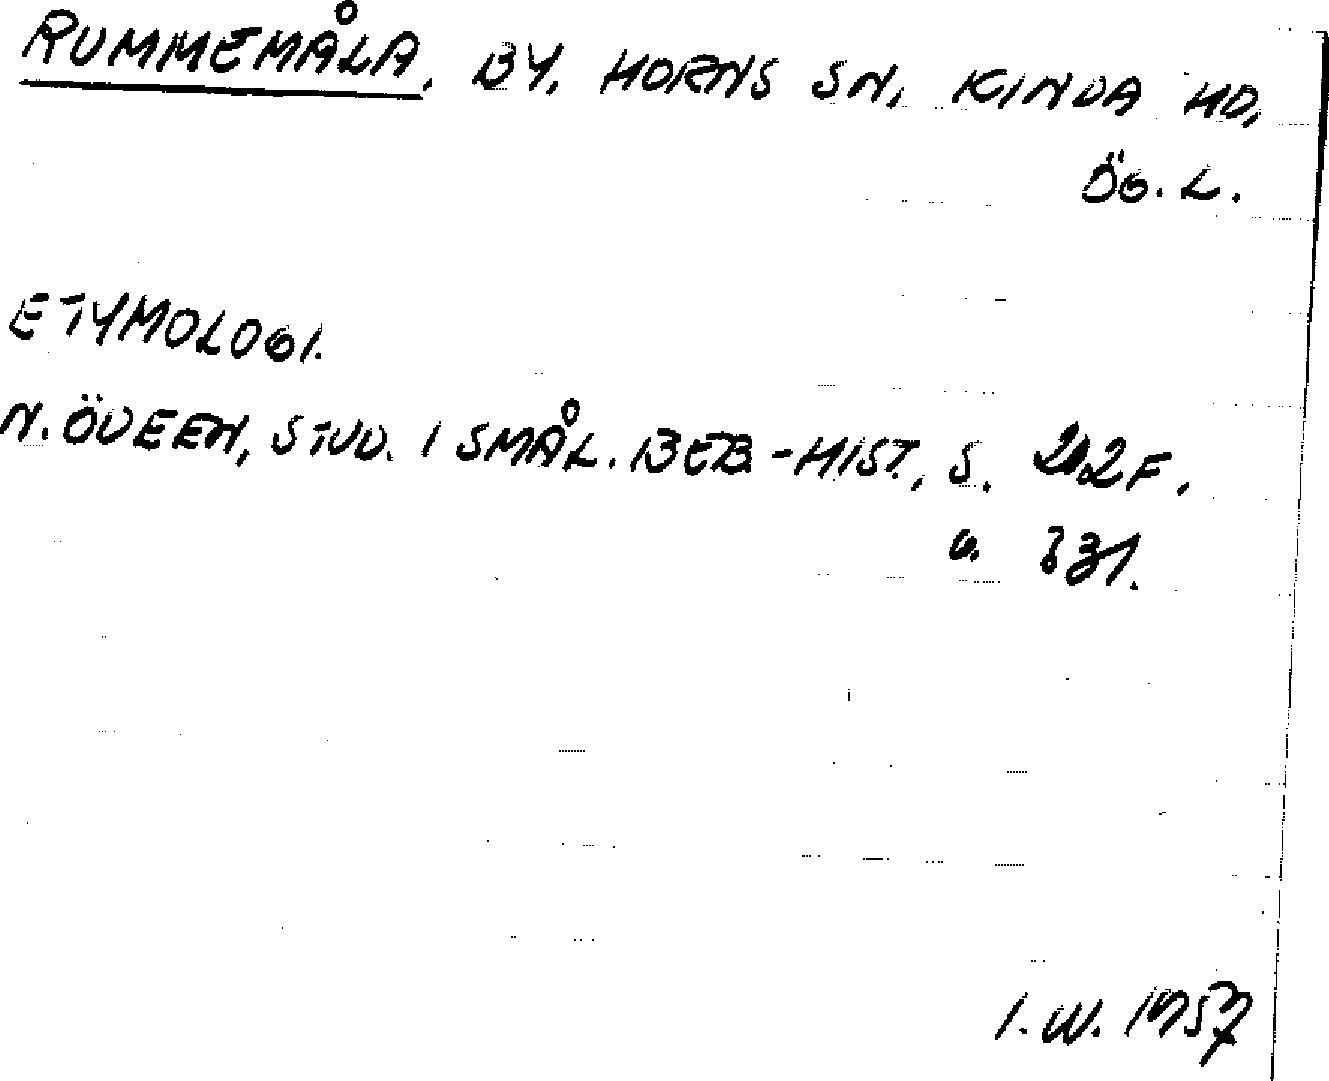 RUMMEMÅLA, BY, HORNS SN, KINDA HD,
ÖG. L.
ETYMOLOGI.
N. ÖDEEN, STUD. I SMÅL. BEB-HIST., S. 202F.
o. 331.
I. W. 1957